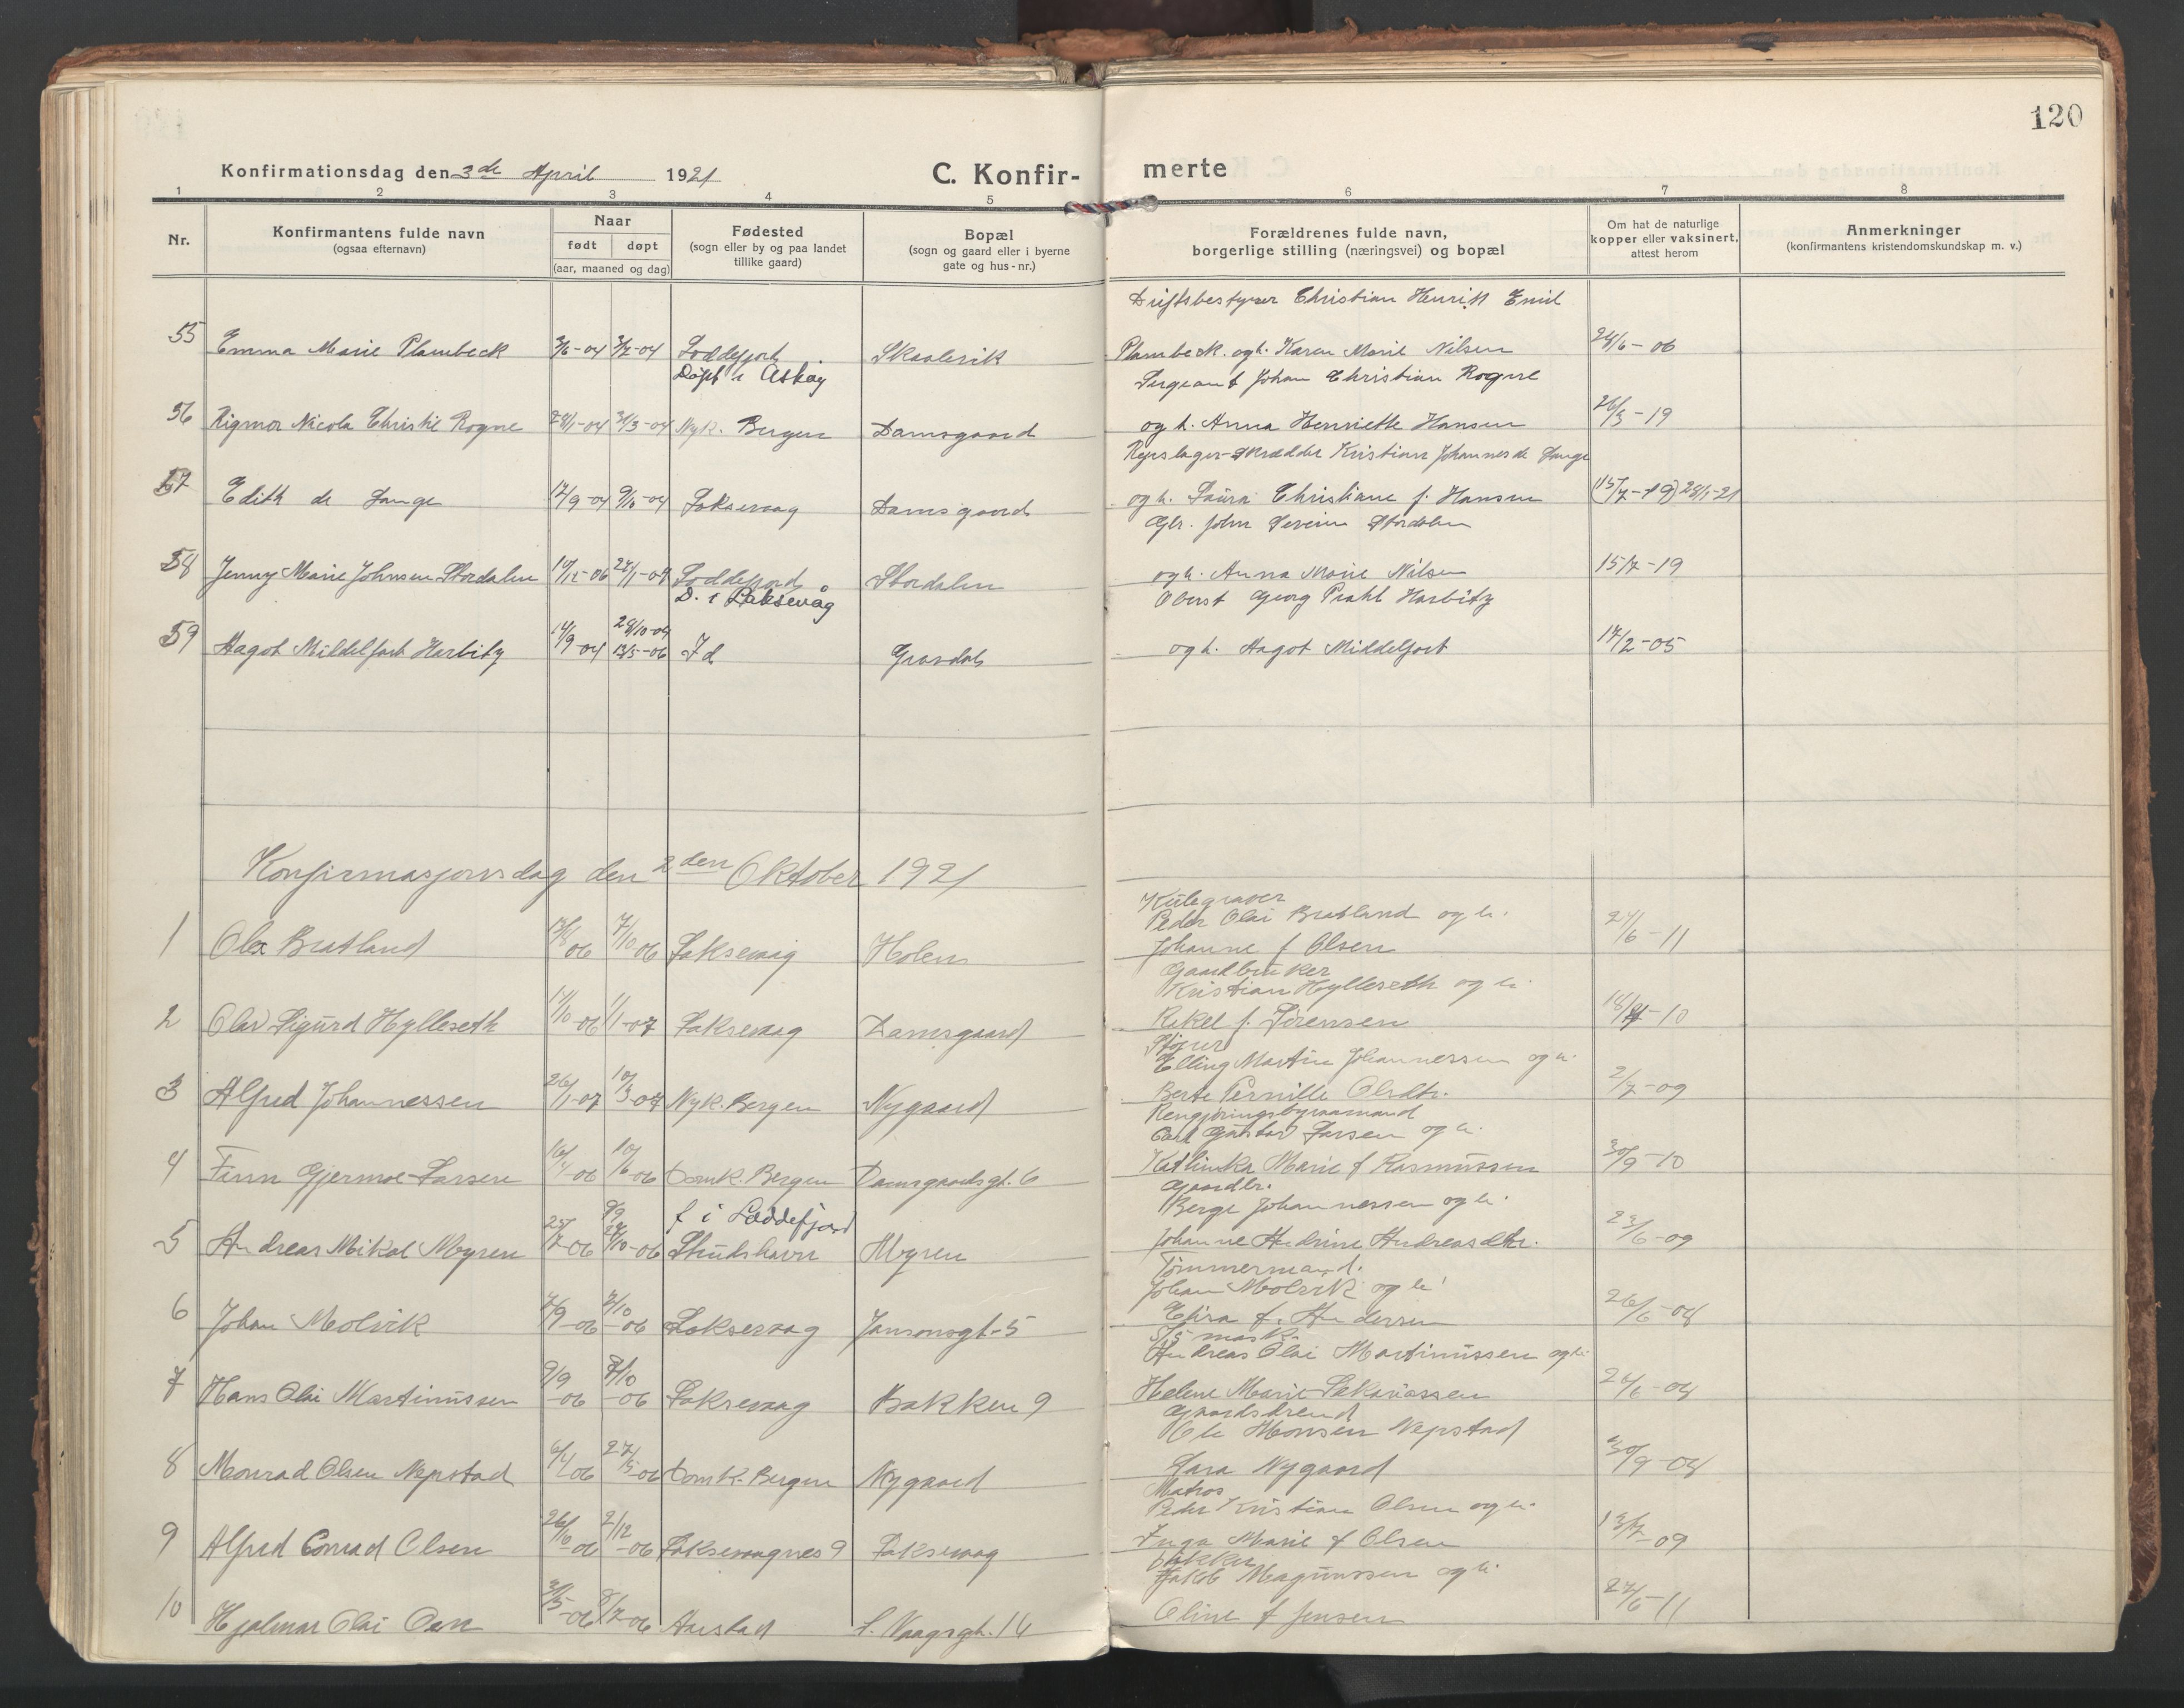 120
Konfirmationsdag den 3de April 1921 C. Konfir- merte
1 2 3 4 5 6 7 8
Nr. Konfirmantens fulde navn (ogsaa efternavn) Naar født døpt (aar, maaned og dag) Fødested (sogn eller by og paa landet tillike gaard) Bopæl (sogn og gaard eller i byerne gate og hus-nr.) Forældrenes fulde navn, borgerlige stilling (næringsvei) og bopæl Om hat de naturlige kopper eller vaksinert, attest herom Anmerkninger (konfirmantens kristendomskundskap m. v.)
Driftsbestyrer Christian Henrik Emil
55 Emma Marie Plambeck 3/6-04 3/7-04 Loddefjord Skaalevik Plambeck. og h. Karen Marie Nilsen 28/6-06
Døpt i Askøy Sergeant Johan Christian Rogne
56 Rigmor Nicola Christie Rogne 28/1-04 31/3-04 Nyk. Bergen Damsgaard og h. Anna Henriette Hansen 26/3-19
Repslager-Skrædder Kristian Johannes de Lange
57 Edith de Lange 12/9-04 9/10-04 Laksevaag Damsgaard og h. Laura Christiane f. Hansen (15/7-19) 28/1-21
Gbr. John Severin Stordalen
58 Jenny Marie Johnsen Stordalen 10/12-06 27/1-07 Loddefjord Stordalen og h. Anna Marie Nilsen 15/7-19
D. i Laksevåg Oberst Georg Prahl Harbitz
28/10-04
59 Aagot Middelfart Harbitz 14/9-04 13/5-06 Id Gravdal og h. Aagot Middelfart 17/2-05
Konfirmasjonsdag den 2den Oktober 1921
Kulegraver
Peder Olai Bratland og h.
1 Olav Bratland 12/8 06 7/10 06 Laksevaag Holen Johanne f Olsen 27/6-11
Gaardbruker
Kristian Hylleseth og h.
2 Olav Sigurd Hylleseth 14/10-06 1/1-07 Laksevaag Damsgaard Rakel f. Sørensen 18/4-10
Støver
Elling Martin Johannessen og h.
3 Alfred Johannessen 26/1-07 10/3-07 Nyk. Bergen Nygaard Berte Pernille Olsdtr. 2/7-09
Rengjøringsbyraamand
Carl Gustav Larsen og h.
4 Finn Gjermoe-Larsen 16/4-06 10/6-06 Domk. Bergen Damsgaardsgt. 6 Katinka Marie f Rasmussen 30/9-10
Gaardbr.
9/9 f i Loddefjord Berge Johannessen og h.
5 Andreas Mikal Myren 25/7-06 28/10-06 Strudshavn Myren Johanne Andrine Andreasdtr. 23/6-09
Tømmermand.
Johan Molvik og h
6 Johan Molvik 2/9-06 7/10-06 Laksevaag Jansonsgt-5 Elira f. Andersen 26/6-08
mask.
Andreas Olai Martinussen og h.
7 Hans Olai Martinussen 9/9-06 7/10-06 Laksevaag Bakken 9 Helene Marie Sakariassen 26/6-08
Gaardsdreng
Ole Monsen Nepstad
8 Monrad Olsen Nepstad 6/4 06 27/5-06 Domk. Bergen Nygaard Lara Nygaard 30/9-08
Matros
Peder Kristian Olsen og h.
9 Alfred Conrad Olsen 26/10-06 2/12-06 Laksevaagnes 9 Laksevaag Inga Marie f Olsen 13/7-09
Jakob Magnussen og h.
10 Hjalmar Olai Oen 3/5-06 8/7-06 Aarstad L. Vaagsgt. 14 Oline f Jensen 27/6-11